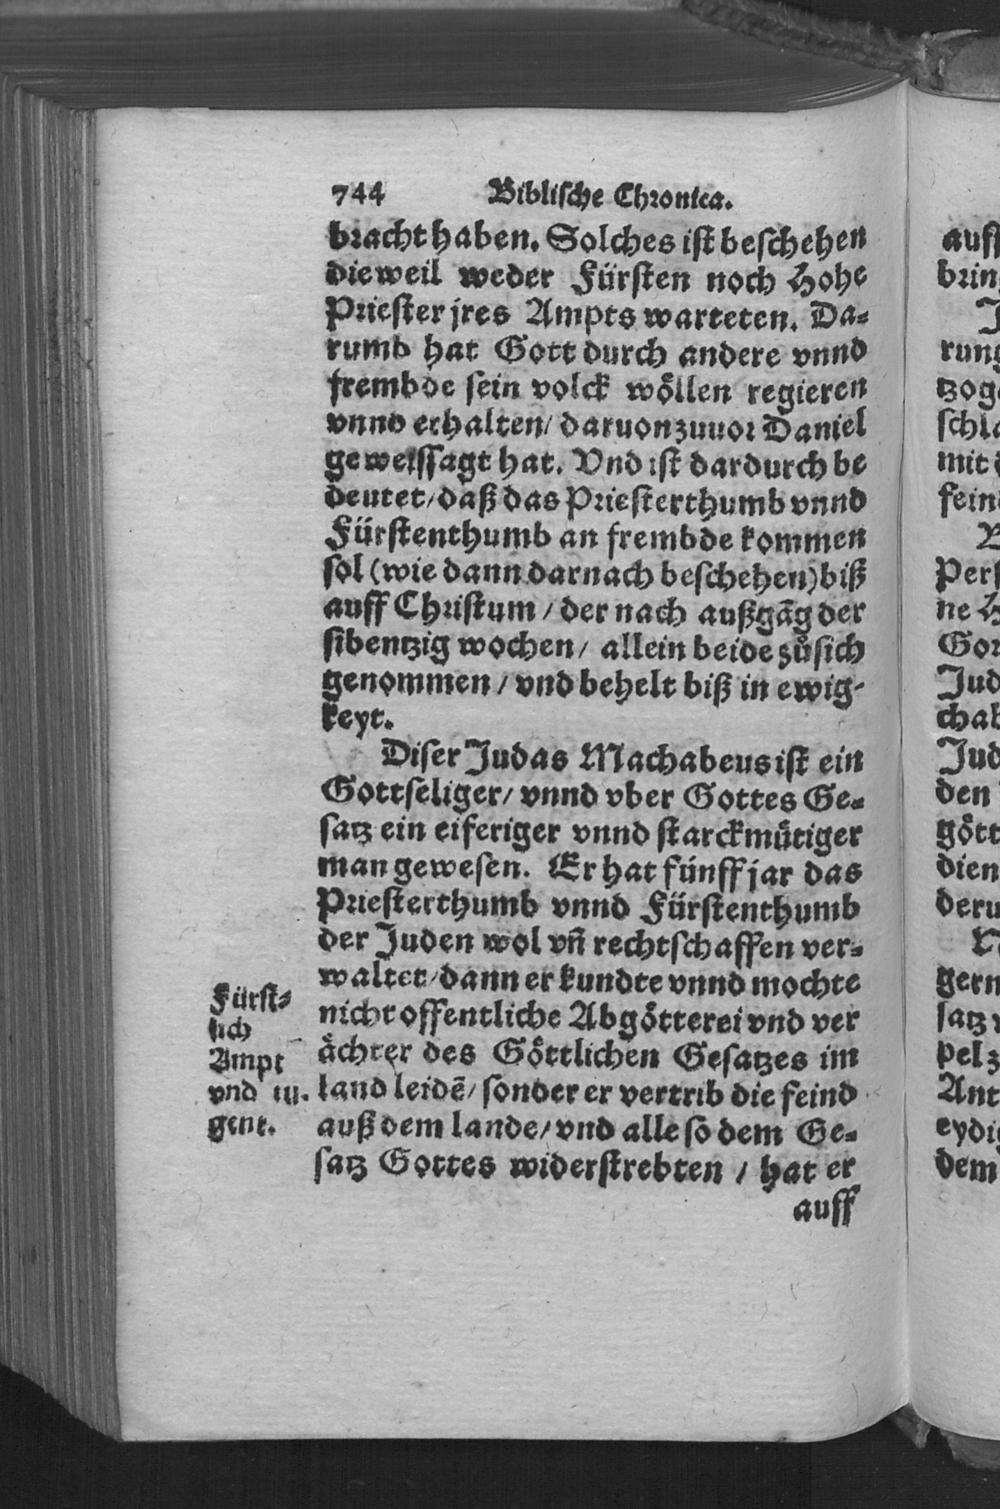 744 Biblische Chronica.
bracht haben. Solches ist beschehen
dieweil weder Fürsten noch Hohe
Priester jres Ampts warteten. Da-
rumb hat Gott durch andere vnnd
frembde sein volck wöllen regieren
vnnd erhalten/ daruon zuuor Daniel
geweissagt hat. Vnd ist dardurch be
deutet/ daß das Priesterthumb vnnd
Fürstenthumb an frembde kommen
sol (wie dann darnach beschehen) biß
auff Christum / der nach außgãg der
sibentzig wochen/ allein beide zůsich
genommen / vnd behelt biß in ewig-
keyt.
Diser Judas Machabeus ist ein
Gottseliger/ vnnd vber Gottes Ge-
satz ein eiferiger vnnd starckmütiger
man gewesen. Er hat fünff jar das
Priesterthumb vnnd Fürstenthumb
der Juden wol vñ rechtschaffen ver-
waltet/ dann er kundte vnnd mochte
nicht offentliche Abgötterei vnd ver
ächter des Göttlichen Gesatzes im
land leidẽ/ sonder er vertrib die feind
auß dem lande/ vnd alle so dem Ge-
satz Gottes widerstrebten / hat er
auff
Fürst-
lich
Ampt
vnd tu-
gent.
auff
bring
rung
tzoge
schla
mit d
feind
Pers
ne H
Gor
Jud
chab
Jud
den
gött
dien
deru
gern
satz
pel z
Ant
eydi
dem